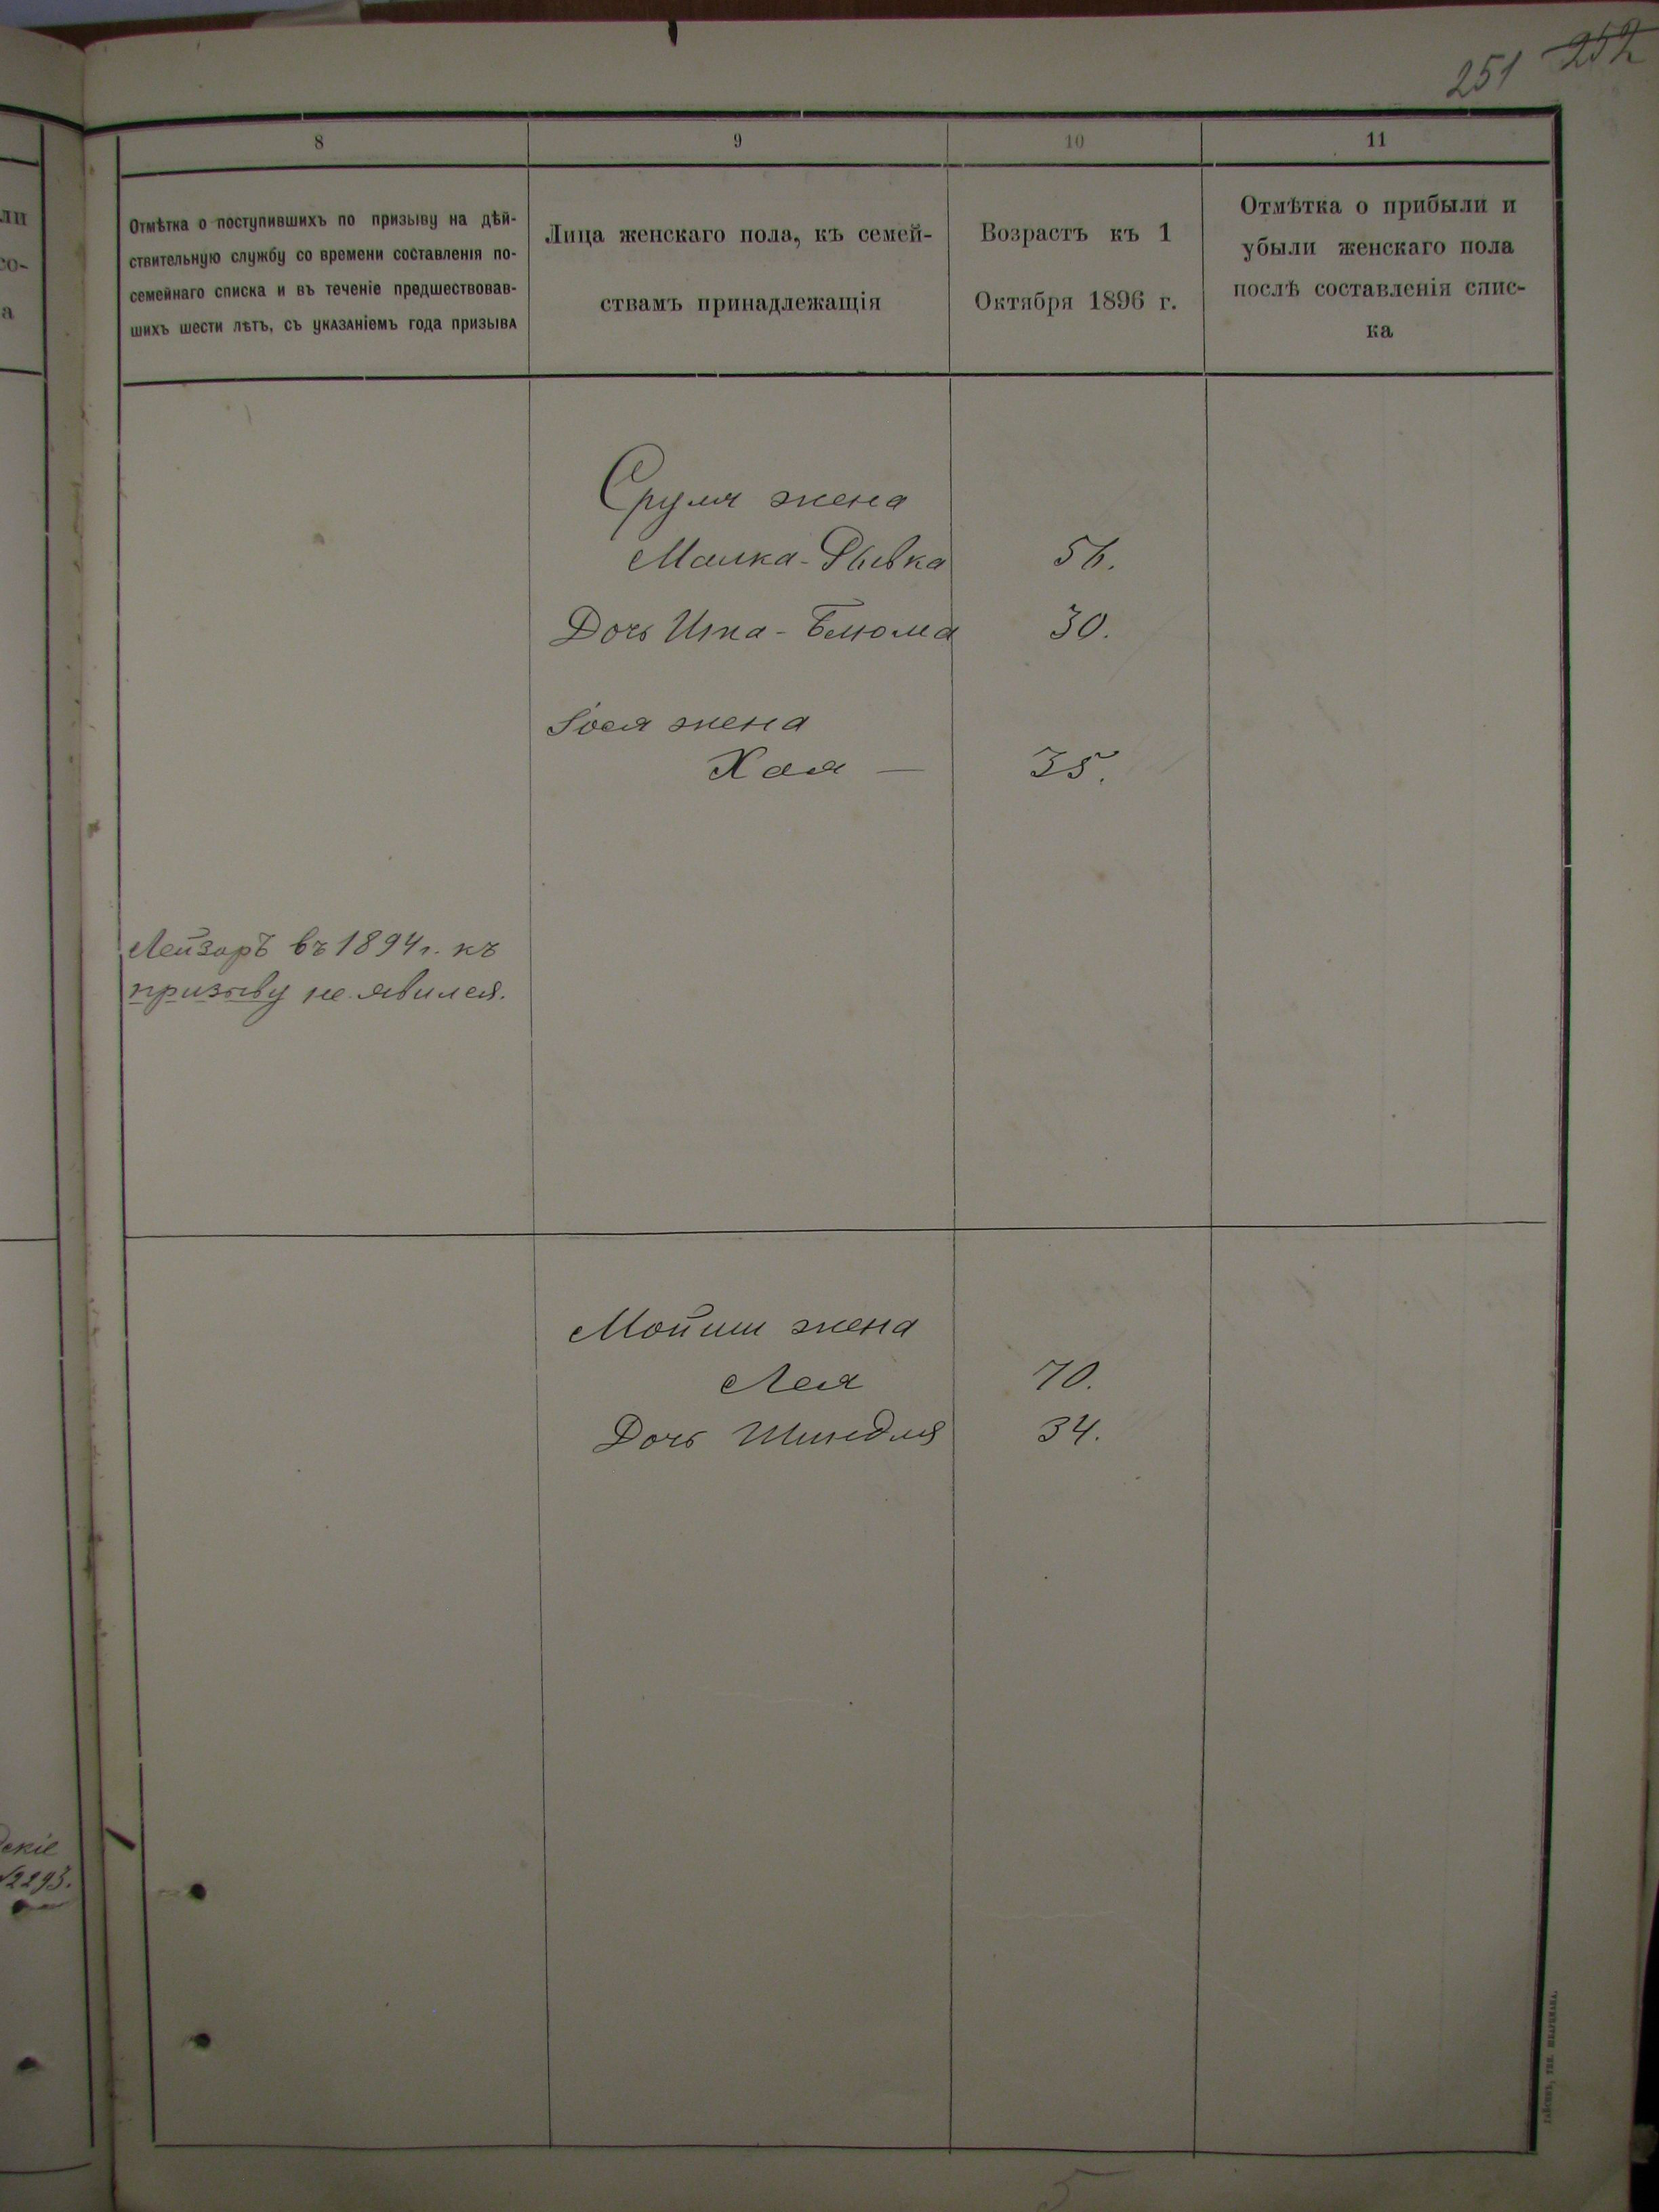 251 252
8
9
10
11
Отмѣтка о поступившихъ по призыву на дѣй-
ствительную службу со времени составленія по-
семейнаго списка и въ теченіе предшествовав-
шихъ шести лѣтъ, съ указаніемъ года призыва
Лица женскаго пола, къ семей-
ствамъ принадлежащія
Возрастъ къ 1
Октября 1896 г.
Отмѣтка о прибыли и
убыли женскаго пола
послѣ составленія спис-
ка
Сруля жена
Малка-Рывка 56.
Дочь Ита-Блюма 30.
Іося жена
Хая — 35.
Лейзоръ въ 1894 г. къ
призыву не явился.
Мойши жена
Лея 70.
Дочь Шиндля 34.
ли
со-
а
скіе
№2293.